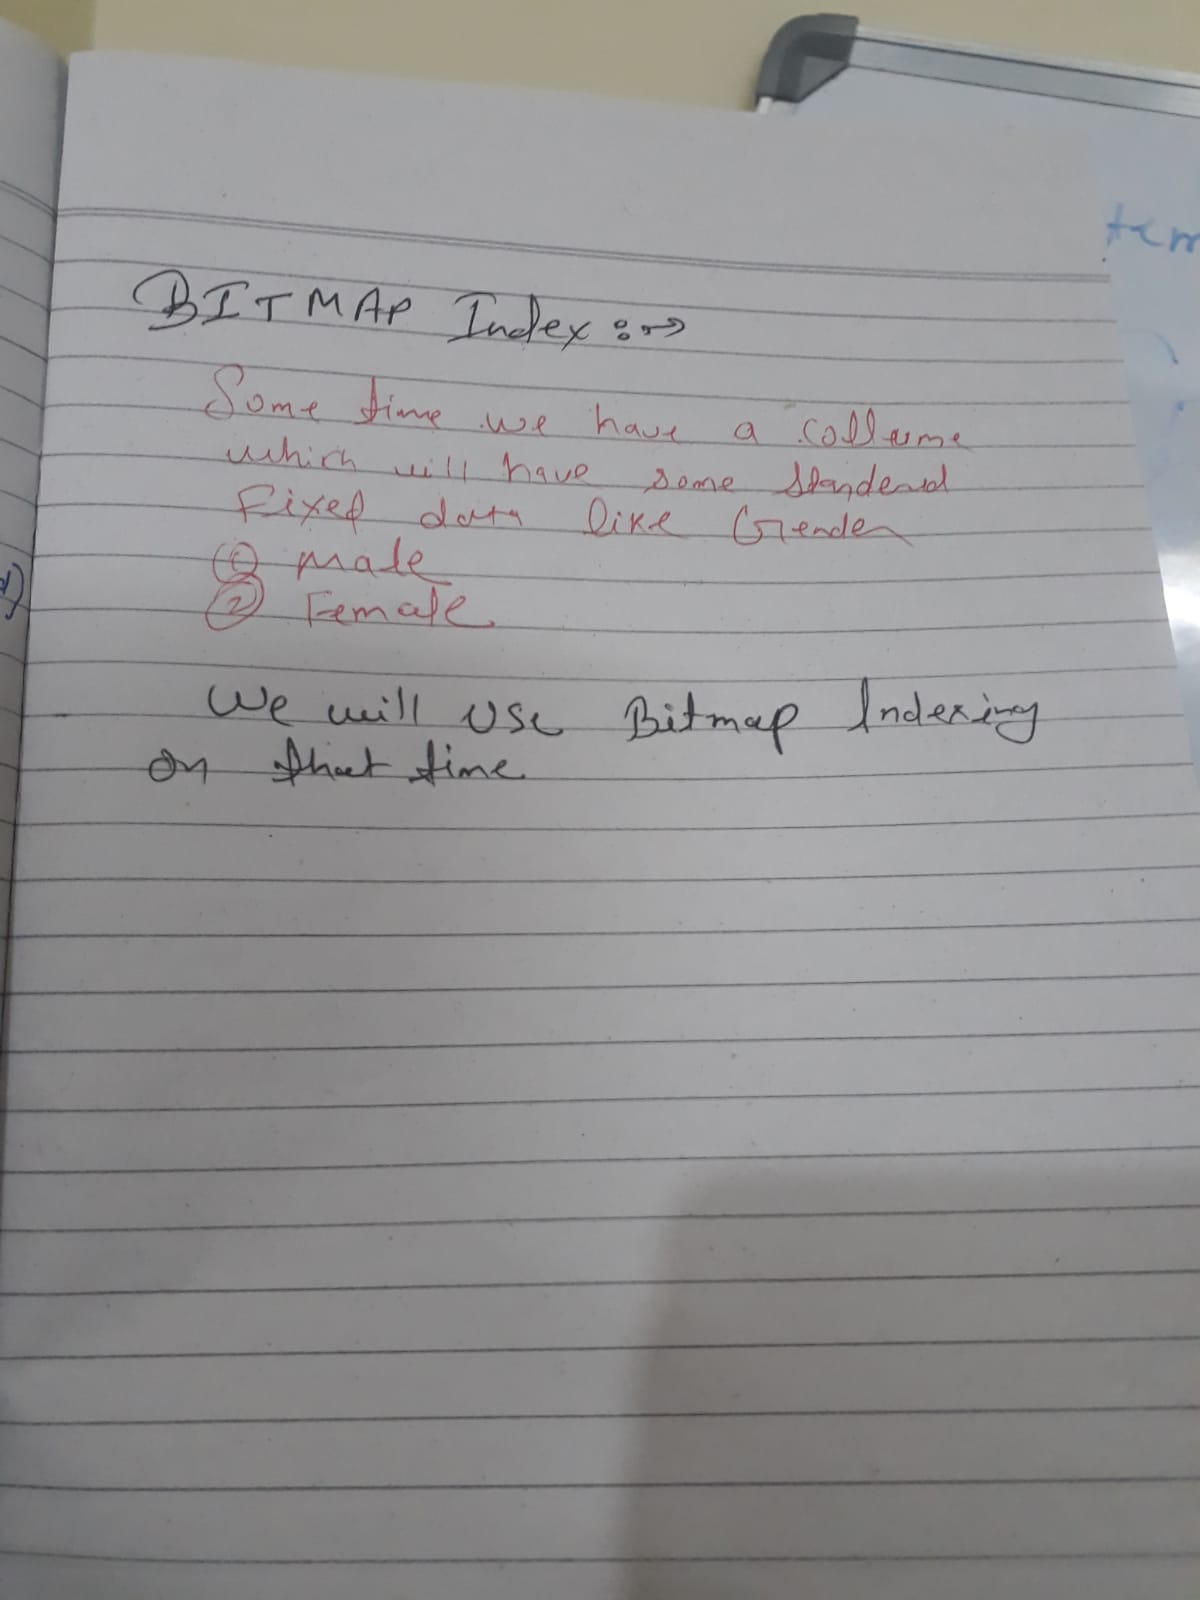 BITMAP Index :→
Some time we have a collume
which will have some standerd
Fixed data like Gender
① male
② Female
We will use Bitmap Indexing
on that time
tem